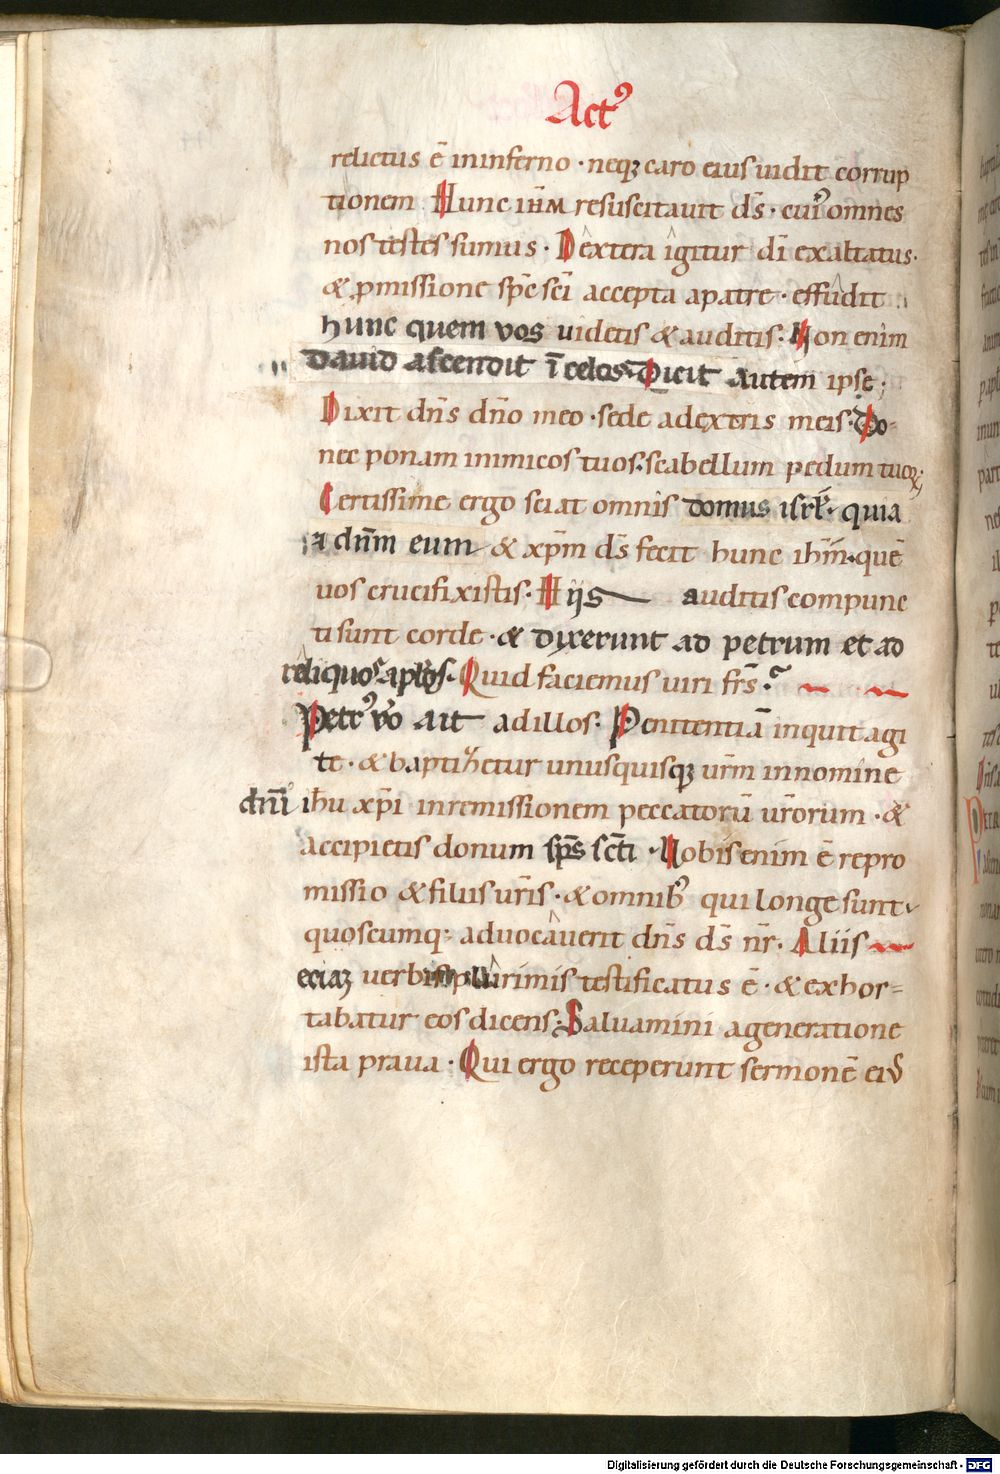 Actꝰ
relictus ē in inferno · neqꝫ caro eius uidit corrup
tionem Hunc ihm̄ resuscitauit ds̄ · cuiꝰ omnes
nos testes sumus · Dextera igitur dī exaltatus ·
& ꝓmissione spc̄ scī accepta a patre · effudit
hunc quem vos uidetis & auditis · Non enim
Dauid ascendit ī celos · Dicit autem ipse ;
Dixit dns̄ dn̄o meo · sede a dextris meis · Do-
nec ponam inimicos tuos · scabellum pedum tuoꝝ ;
Certissime ergo sciat omnis domus isrl̄ · quia
dn̄m eum & xpm̄ ds̄ fecit hunc ihm̄ · quē
uos crucifixistis · Hijs auditis compunc
ti sunt corde · & dixerunt ad petrum et ad
reliquos aplōs · Quid faciemus uiri frs̄ ·
Petrꝰ v̄o ait ad illos · Penitentiā inquit agi
te · & baptizetur unusquisqꝫ urm̄ in nomine
dn̄i ihu xpi in remissionem peccatorū urōrum · &
accipietis donum sps̄ scti · Uobis enim ē repro
missio & filiis urīs · & omnibꝰ qui longe sunt
quoscumq; aduocauerit dns̄ ds̄ nr̄ · Aliis
eciaꝫ uerbis plurimis testificatus ē · & exhor-
tabatur eos dicens ; Saluamini a generatione
ista praua · Qui ergo receperunt sermonē eiꝰ
Digitalisierung gefördert durch die Deutsche Forschungsgemeinschaft - DFG